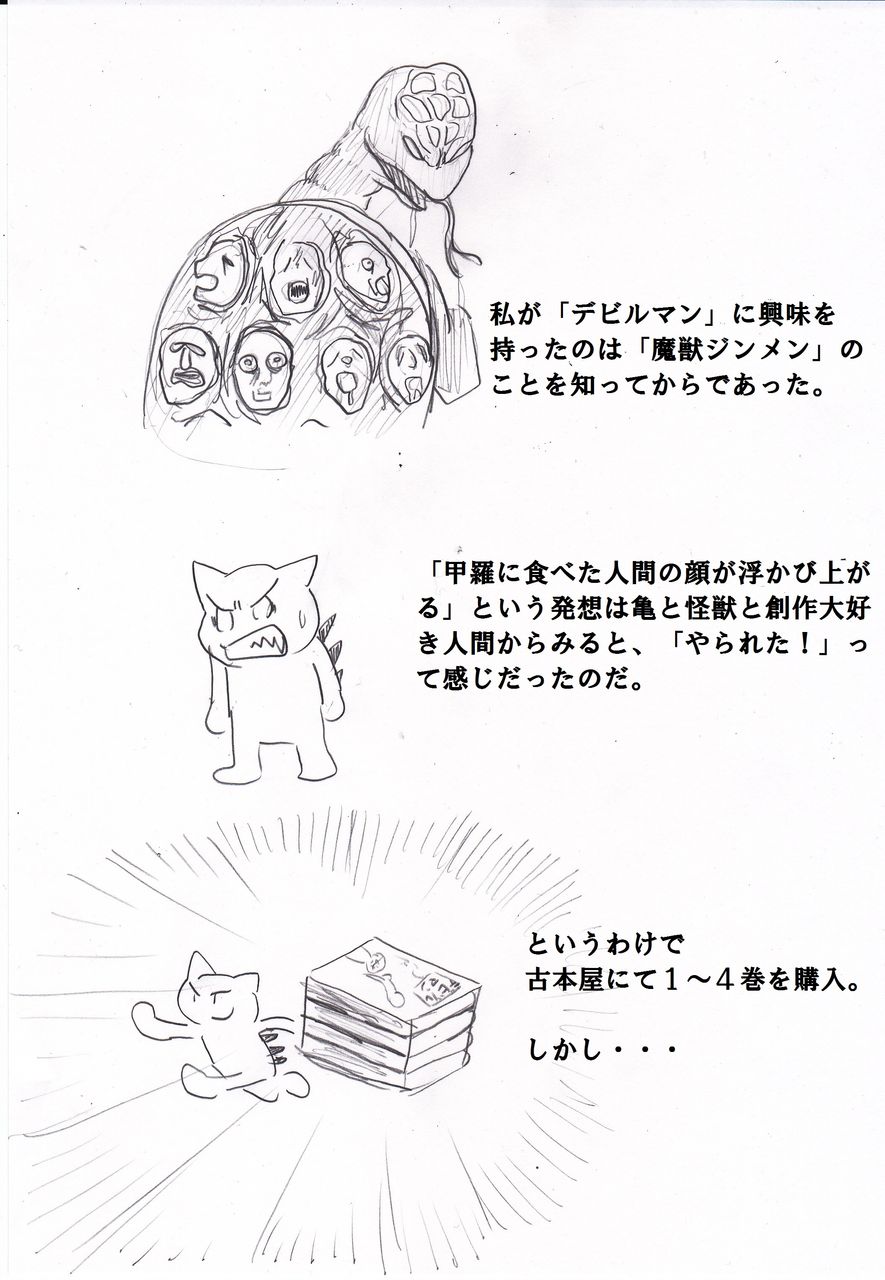 私が「デビルマン」に興味を
持ったのは「魔獣ジンメン」の
ことを知ってからであった。
「甲羅に食べた人間の顔が浮かび上が
る」という発想は亀と怪獣と創作大好
き人間からみると、「やられた！」っ
て感じだったのだ。
というわけで
古本屋にて１～４巻を購入。
しかし・・・
デビル
マン